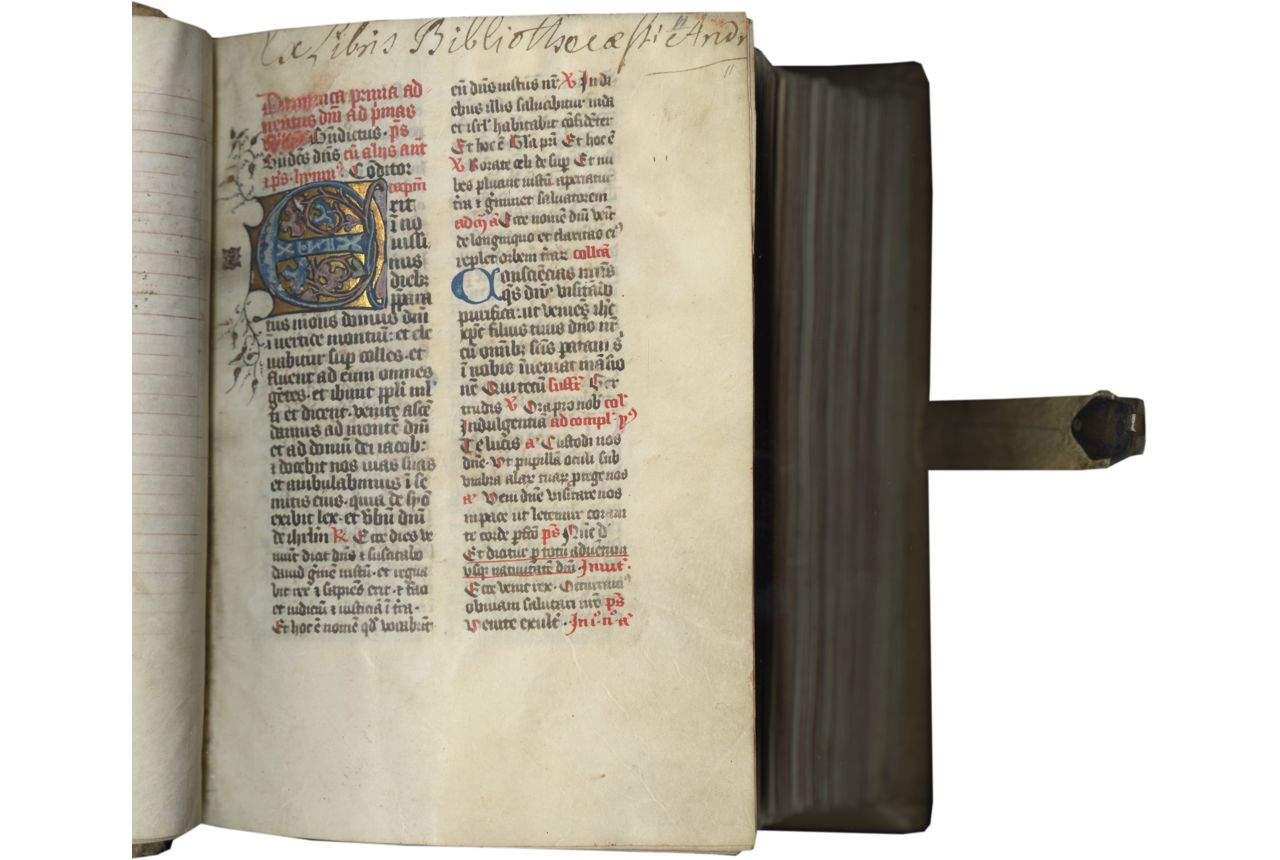 Ex Libris Bibliothecæ Sti Andr
11
Dominica prima ad
uentus dn̄i ad p̄mas
Bn̄dictus · ps̄
Bn̄dc̄s dn̄s cū alijs ant̄
⁊ ps̄ · hymn⁹ Cōditor
capm̄
Erit
ī no
uissi
mis
dieb;
p̄para
tus mons domus dn̄i
ī uertice montiū: et ele
uabitur sup colles · et
fluent ad eum omnes
gētes · et ibunt ppl̄i ml̄
ti et dicent · uenite ascē
damus ad montē dn̄i
et ad domū dei iacob:
⁊ docebit nos uias suas
et ambulabimus ī se
mitis eius · quia de syō
exibit lex · et v̄bū dn̄i
de ihrl̄m R̄ Ecce dies ve
niūt dicit dn̄s ⁊ suscitabo
dauid gm̄e iustū · et regna
bit rex ⁊ sapiēs erit · ⁊ fac̄
et iudiciū ⁊ iusticiā ī t̄ra ·
Et hoc ē nomē qd̄ vocabūt
eū dn̄s iustus nr̄ V̄ In di
ebus illis saluabitur iuda
et isrl̄ habitabit cōfidēter
Et hoc ē Gl̄a pr̄i Et hoc ē
V̄ Rorate celi de sup Et nu
bes pluant iustū aperiatur
t̄ra ⁊ gm̄inet saluatorem
ad m̄ a Ecce nomē dn̄i venit
de longinquo et claritas ei⁹
replet orbem t̄raꝝ collcā
Consciēcias nr̄as
q̄s dn̄e visitādo
purifica: ut veniēs ih̄c
xp̄c filius tuus dn̄s nr̄
cū omīb; sc̄is patam s̄
ī nobis īueniat māsio
nē Qui tecū suffr̄ Ger
trudis V̄ Ora pro nob̄ col̄
Indulgentiā ad compl̄ · p⁹
Te lucis a Custodi nos
dn̄e · vt pupillā oculi sub
vmbra alaꝝ tuaꝝ ptege nos
a Veni dn̄e visitare nos
in pace ut letemur coram
te corde pfc̄o ps̄ Nūc d̄
Et dicitur p totū aduentum
vsq; natiuitatē dn̄i · Inuit̄ ·
Ecce venit rex · Occuram⁹
obuiam saluatori nr̄o ps̄
Venite exult̄ · In i° · n° a